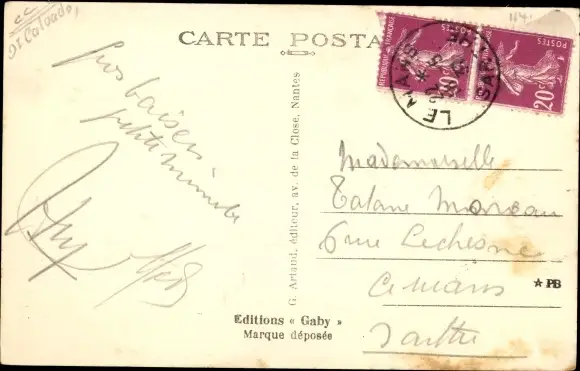 CC
Dt Calvados
114.
CARTE POSTA
RÉPUBLIQUE FRANÇAISE
POSTES
20c
POSTES
20c
LE MANS
SARTHE
Gros baisers
petite mimile
Mademoiselle
Tatane Moreau
6 rue Lechesne
Le Mans
Sarthe
G. Artaud, éditeur, av. de la Close, Nantes
★ PB
Editions « Gaby »
Marque déposée